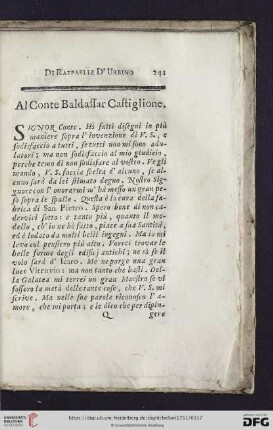 DI RAFFAELLE D'URBINO 241
Al Conte Baldassar Castiglione.
SIGNOR Conte. Hò fatti disegni in più
maniere sopra l'invenzione di V. S., e
sodisfaccio a tutti, se tutti non mi sono adu-
latori; ma non sodisfaccio al mio giudicio,
perche temo di non sodisfare al vostro. Ve gli
mando, V. S. faccia scelta d'alcuno, se al-
cuno sarà da lei stimato degno. Nostro Sig-
nore con l'onorarmi m'hà messo un gran pe-
so sopra le spalle. Questa è la cura della fa-
brica di San Pietro. Spero bene di non ca-
dervici sotto: e tanto più, quanto il mo-
dello, ch'io ne hò fatto, piace a sua Santità,
ed è lodato da molti belli ingegni. Ma io mi
levo col pensiero più alto. Vorrei trovar le
belle forme degli edificj antichi; nè sò se il
volo sarà d'Icaro. Me ne porge una gran
luce Vitruvio: ma non tanto che basti. Del-
la Galatea mi terrei un gran Maestro se vi
fossero la metà delle tante cose, che V. S. mi
scrive. Ma nelle sue parole riconosco l'a-
more, che mi porta; e le dico che per dipin-
Q gere
UNIVERSITÄTS-
BIBLIOTHEK
HEIDELBERG
http://digi.ub.uni-heidelberg.de/diglit/bellori1751/0317
© Universitätsbibliothek Heidelberg
gefördert durch die
DFG